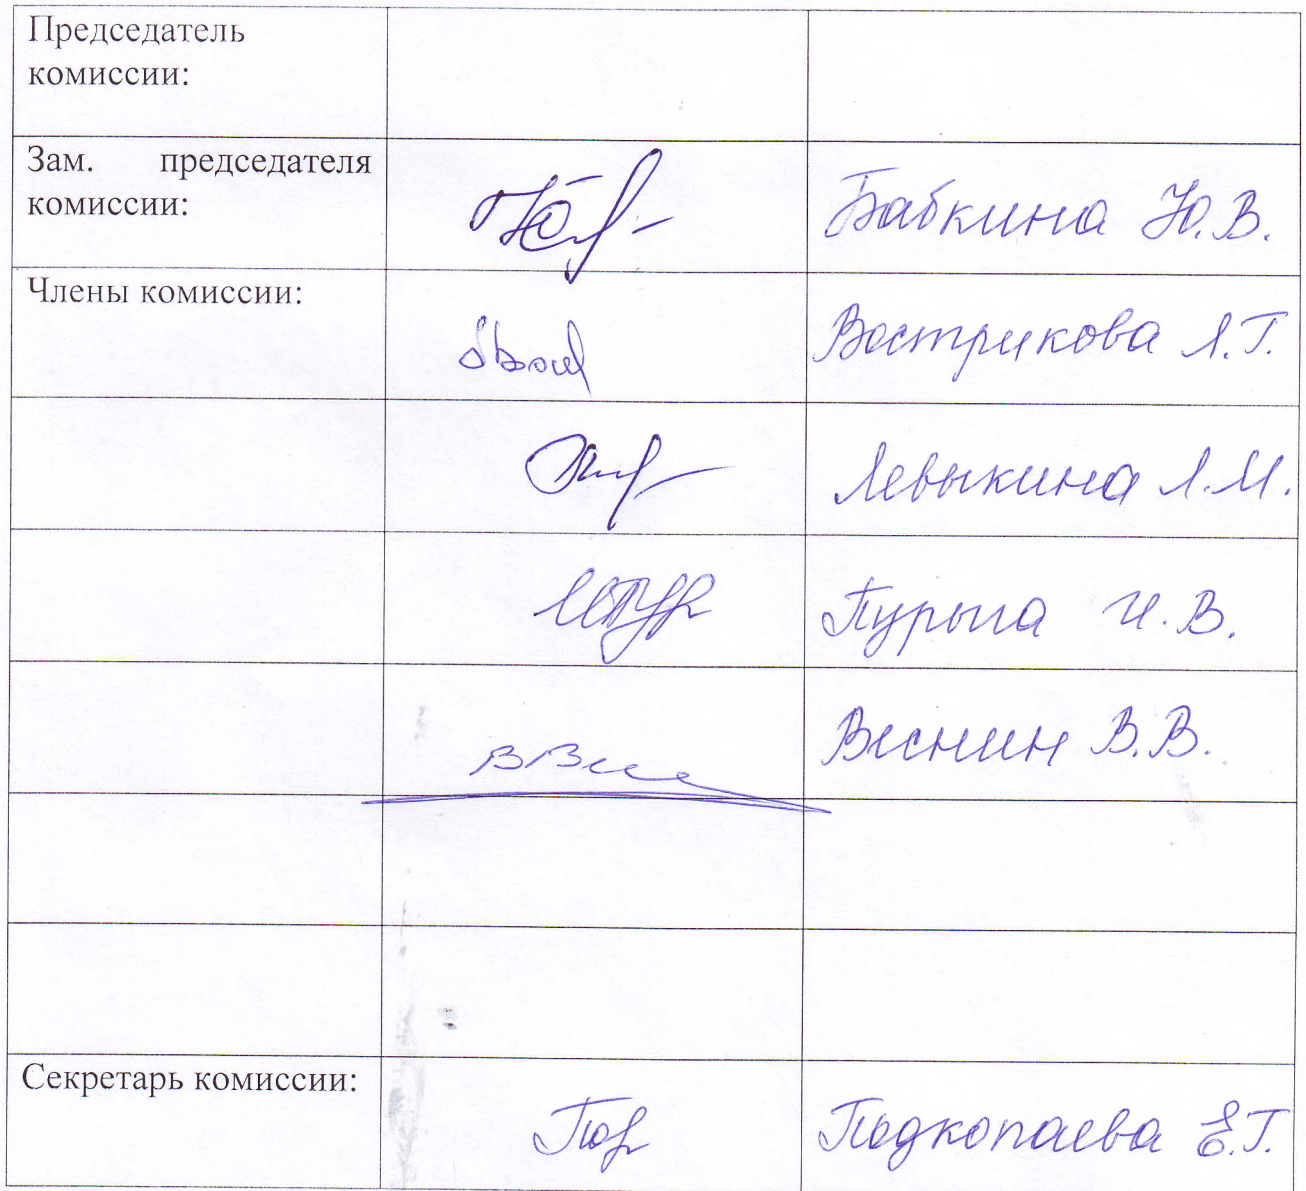 Председатель
комиссии:
Зам. председателя
комиссии:
Бабкина Ю.В.
Члены комиссии:
Вострикова Л.Г.
Левыкина Л.М.
Пурыга И.В.
Веснин В.В.
Секретарь комиссии:
Подкопаева Е.Г.